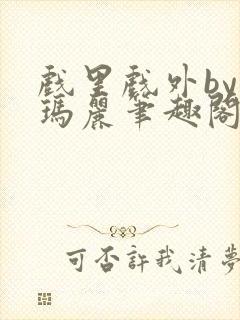 戲里戲外by
瑪麗筆趣閣
可否許我清夢